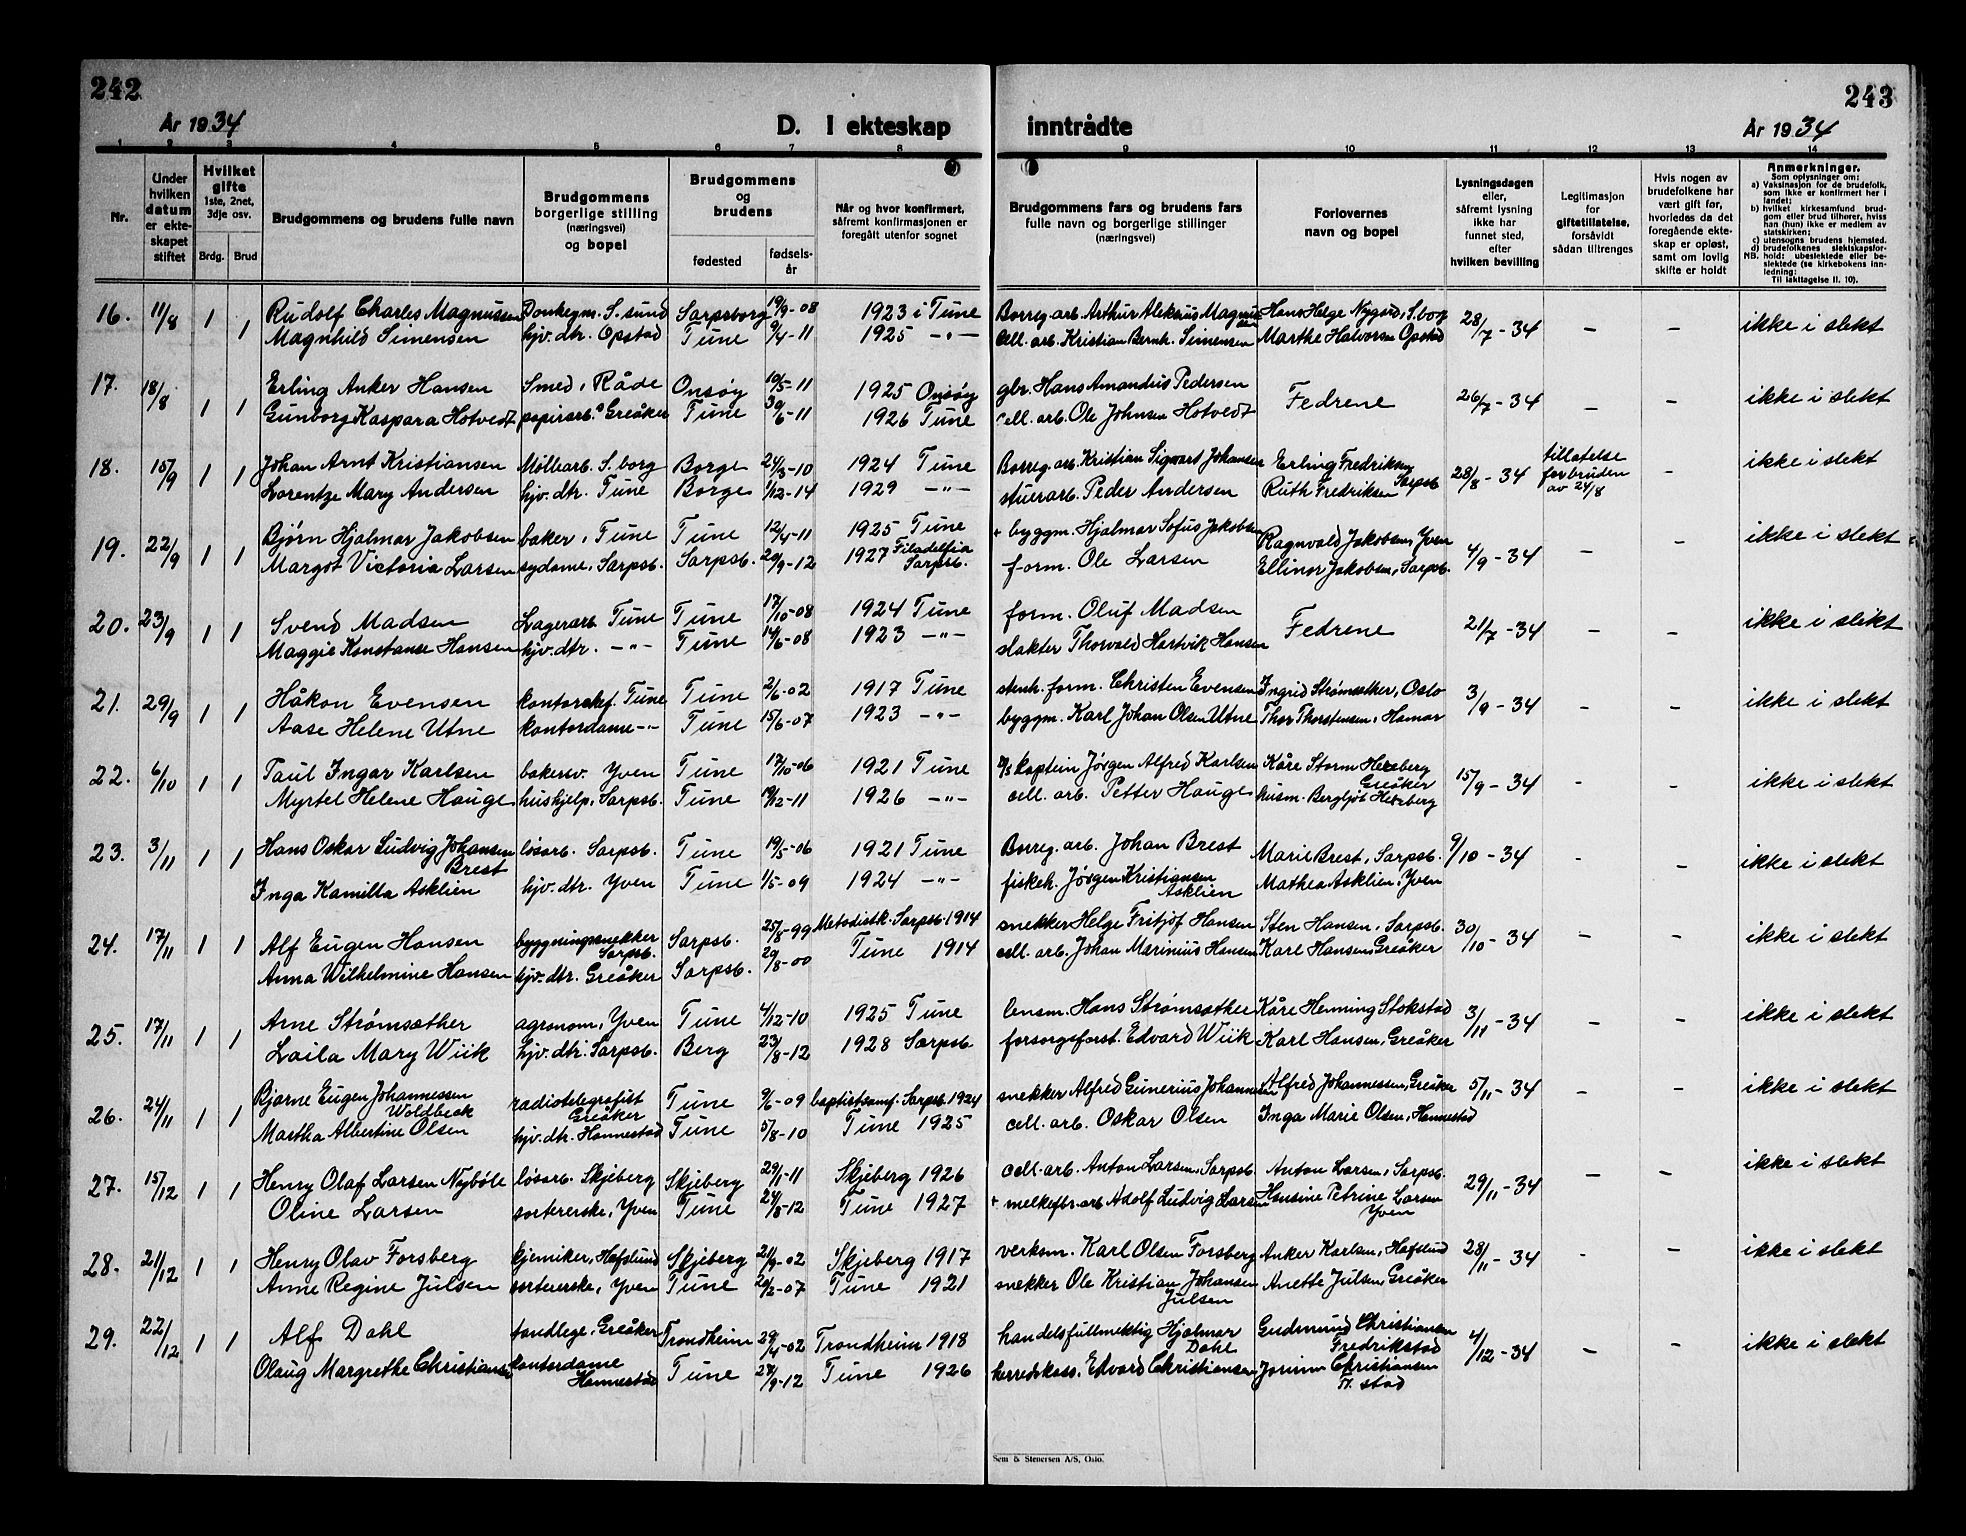 242
243
År 1934
D. I ekteskap
inntrådte
År 1934
1 2 3 4 5 6 7 8 9 10 11 12 13 14
Nr.
Under hvilken datum er ekte-skapet stiftet
Hvilket gifte 1ste, 2net, 3dje osv.
Brdg. Brud
Brudgommens og brudens fulle navn
Brudgommens borgerlige stilling (næringsvei) og bopel
Brudgommens og brudens
fødested
fødsels-år
Når og hvor konfirmert, såfremt konfirmasjonen er foregått utenfor sognet
Brudgommens fars og brudens fars fulle navn og borgerlige stillinger (næringsvei)
Forlovernes navn og bopel
Lysningsdagen eller, såfremt lysning ikke har funnet sted, efter hvilken bevilling
Legitimasjon for giftetillatelse, forsåvidt sådan tiltrenges
Hvis nogen av brudefolkene har vært gift før, hvorledes da det foregående ekte-skap er opløst, samt om lovlig skifte er holdt
Anmerkninger.
Som oplysninger om:
a) Vaksinasjon for de brudefolk, som ikke er konfirmert her i landet;
b) hvilket kirkesamfund brud-gom eller brud tilhører, hviss han (hun) ikke er medlem av statskirken;
c) utensogns brudens hjemsted.
d) brudefolkenes slektskapsfor-hold: ubeslektede eller be-slektede (se kirkebokens inn-ledning;
NB. Til iakttagelse II. 10).
16. 11/8 1 1 Rudolf Charles Magnussen Donkeym. S.sund Sarpsborg 19/9-08 1923 i Tune Borreg. arb. Arthur Aleksius Magnussen Hans Helge Nygård, S.borg 28/7-34 – – ikke i slekt
Magnhild Simensen hjv. dtr. Opstad Tune 9/4-11 1925 -"- Cell. arb. Kristian Bernh. Simensen Marthe Halvorsen Opstad
17. 18/8 1 1 Erling Anker Hansen Smed, Råde Onsøy 10/5-11 1925 Onsøy gbr. Hans Amandus Pedersen Fedrene 26/7-34 – – ikke i slekt
Gunborg Kaspara Hotvedt papirarb. Greåker Tune 30/6-11 1926 Tune cell. arb. Ole Johnsen Hotvedt
18. 15/9 1 1 Johan Arnt Kristiansen Møllearb. S.borg Borge 24/3-10 1924 Tune Borreg. arb. Kristian Sigvart Johansen Erling Fredriksen 28/8-34 tillatelse for bruden av 24/8 – ikke i slekt
Lorentze Mary Andersen hjv. dtr. Tune Borge 1/12-14 1929 -"- stuerarb. Peder Andersen Ruth Fredriksen Sarpsb
19. 22/9 1 1 Bjørn Hjalmar Jakobsen baker, Tune Tune 12/4-11 1925 Tune + byggm. Hjalmar Sofus Jakobsen Ragnvald Jakobsen, Yven 4/9-34 – – ikke i slekt
Margot Victoria Larsen sydame, Sarpsb. Sarpsb. 29/9-12 1927 Filadelfia Sarpsb. form. Ole Larsen Ellinor Jakobsen, Sarpsb.
20. 23/9 1 1 Svend Madsen Lagerarb. Tune Tune 17/10-08 1924 Tune form. Oluf Madsen Fedrene 21/7-34 – – ikke i slekt
Maggie Konstanse Hansen hjv. dtr. -"- Tune 14/6-08 1923 -"- slakter Thorvald Hartvik Hansen
21. 29/9 1 1 Håkon Evensen kontorchef. Tune Tune 2/6-02 1917 Tune stenh. form. Christen Evensen Ingrid Strømsæther, Oslo 3/9-34 – – ikke i slekt
Aase Helene Utne kontordame -"- Tune 15/6-07 1923 -"- byggm. Karl Johan Olsen Utne Thor Thorstensen, Hamar
22. 6/10 1 1 Paul Ingar Karlsen bakersv. Yven Tune 17/10-06 1921 Tune kaptein Jørgen Alfred Karlsen Kåre Storm Herzberg Greåker 15/9-34 – – ikke i slekt
Myrtel Helene Hauge hushjelp, Sarpsb. Tune 19/12-11 1926 -"- cell. arb. Petter Hauge husm. Bergljot Herzberg
23. 3/11 1 1 Hans Oskar Ludvig Johansen Brest løsarb. Sarpsb. Tune 19/5-06 1921 Tune Borreg. arb. Johan Brest Marie Brest, Sarpsb. 9/10-34 – – ikke i slekt
Inga Kamilla Asklien hjv. dtr. Yven Tune 1/5-09 1924 -"- fiskeh. Jørgen Kristiansen Asklien Mathea Asklien, Yven
24. 17/11 1 1 Alf Eugen Hansen bygningssnekker Sarpsb. Sarpsb. 25/8-99 Metodistk. Sarpsb. 1914 snekker Helge Fritjof Hansen Sten Hansen, Sarpsb. 30/10-34 – – ikke i slekt
Anna Wilhelmine Hansen hjv. dtr. Greåker Sarpsb. 29/8-00 Tune 1914 cell. arb. Johan Marinius Hansen Karl Hansen, Greåker
25. 17/11 1 1 Arne Strømsæther agronom, Yven Tune 4/12-10 1925 Tune lensm. Hans Strømsæther Kåre Henning Stokstad 3/11-34 – – ikke i slekt
Laila Mary Wiik hjv. dtr. Sarpsb. Berg 23/8-12 1928 Sarpsb forsorgsforst. Edvard Wiik Karl Hansen, Greåker
26. 24/11 1 1 Bjarne Eugen Johannessen Woldbeck radiotelegrafist Greåker Tune 9/6-09 baptistsamf. Sarpsb. 1924 snekker Alfred Gunerius Johannessen Alfred Johannessen, Greåker 5/11-34 – – ikke i slekt
Martha Albertine Olsen hjv. dtr. Hannestad Tune 5/8-10 Tune 1925 cell. arb. Oskar Olsen Inga Marie Olsen, Hannestad
27. 15/12 1 1 Henry Olaf Larsen Nybøle løsarb. Skjeberg Skjeberg 29/1-11 Skjeberg 1926 cell. arb. Anton Larsen, Sarpsb Anton Larsen, Sarpsb. 29/11-34 – – ikke i slekt
Oline Larsen sortererske, Yven Tune 24/8-12 Tune 1927 + melkefbr. arb Adolf Ludvig Larsen Hansine Petrine Larsen Yven
28. 21/12 1 1 Henry Olav Forsberg kjemiker, Hafslund Skjeberg 21/9-02 Skjeberg 1917 verksm. Karl Olsen Forsberg Anker Karlsen, Hafslund 28/11-34 – – ikke i slekt
Anne Regine Julsen sortererske, Yven Tune 20/2-07 Tune 1921 snekker Ole Kristian Johansen Julsen Anette Julsen, Greåker
29. 22/12 1 1 Alf Dahl tandlege, Greåker Trondheim 29/4-02 Trondheim 1918 handelsfullmektig Hjalmar Dahl Gudmund Christiansen Fredrikstad 4/12-34 – – ikke i slekt
Olaug Margrethe Christiansen kontordame Hannestad Tune 27/9-12 Tune 1926 herredskass. Edvard Christiansen Jorunn Christiansen Fr. stad
Sem & Stenersen A/S, Oslo.